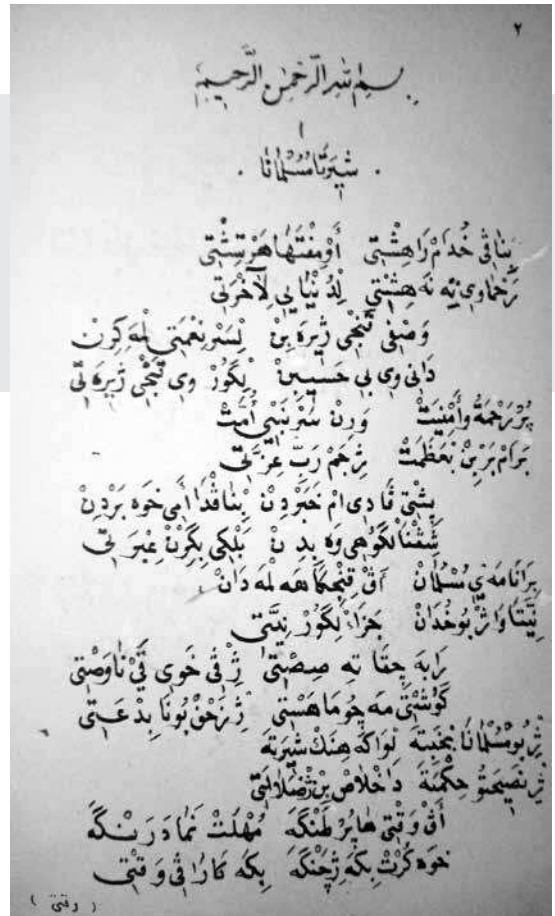 ٢
بسم الله الرحمن الرحيم
١
شِيرَتَا مُسْلمَانَا
بِنَافِي خُدَامْ رَاهِشْتِي أَوْمِفْتَهَا هَرْتِشْتِي
رَحْمَاوِي يِه نَه هِشْتِي لِدُنْيَايِي لِآخْرَتِي
وَصْفِي قَنْجِي ژِيرَه بِنْ لِسَرْ نِعْمَتِي لمَه كِرِنْ
دَانِي وِي بِي حَسِيبِنْ لِگُورْ وِي قَنْجِي ژِيرَه تِي
پُرْ رَحْمَةُ وأَمْنِيَتْ وَرِنْ سَرْ نَبِيّ أُمَّتْ
بَرَامْ بَرْ بِنْ بْعَظَمَتْ ژِجَمْ رَبّ عِزَّتِي
پشْتِي ڤَادِي امْ خَبَرْدِنْ بِنَاڤْدَا أَمِي خوَه بَرْدِنْ
شَقْنَا لگوُهِي وَه بدِنْ بَلْكِي بِگِرِنْ عِبْرَتِي
بِرَانَا مَه يِ مُسُلْمَانْ أَڤْ قِنْجِكَا هَه لمَه دَانْ
نِيَّتَا وَانْ ژْبُو خُدَانْ جَزَاءْ لِگُورْ نِيَّتِي
رَابَه جِفَاتَه صِحّتِي ژْ ڤِي خَوِي ڤِي نَاوَصْتِي
گوُشْتِي مَه چُو مَا هَسْتِي ژِ زَحْقْ بُونَا بِدْعَتِي
ژِبُو مُسُلْمَانَا بخَبَتَه لوَاكَه هِنَكْ شِيرَتَه
ژِ نَصِيحَتُ حِكْمَتَه دَاخْلَاصْ بِنْ ژْ ضَلَالَتِي
أَڤْ وَقْتِي هَا پُرْ طَنْگَه مُهْلَتْ نَمَا دَرَنْگَه
خوَه كُرْتْ بِكَه ژِچَنْگَه بِكَه كَارَا ڤِي وَقْتِي
( وقتي )